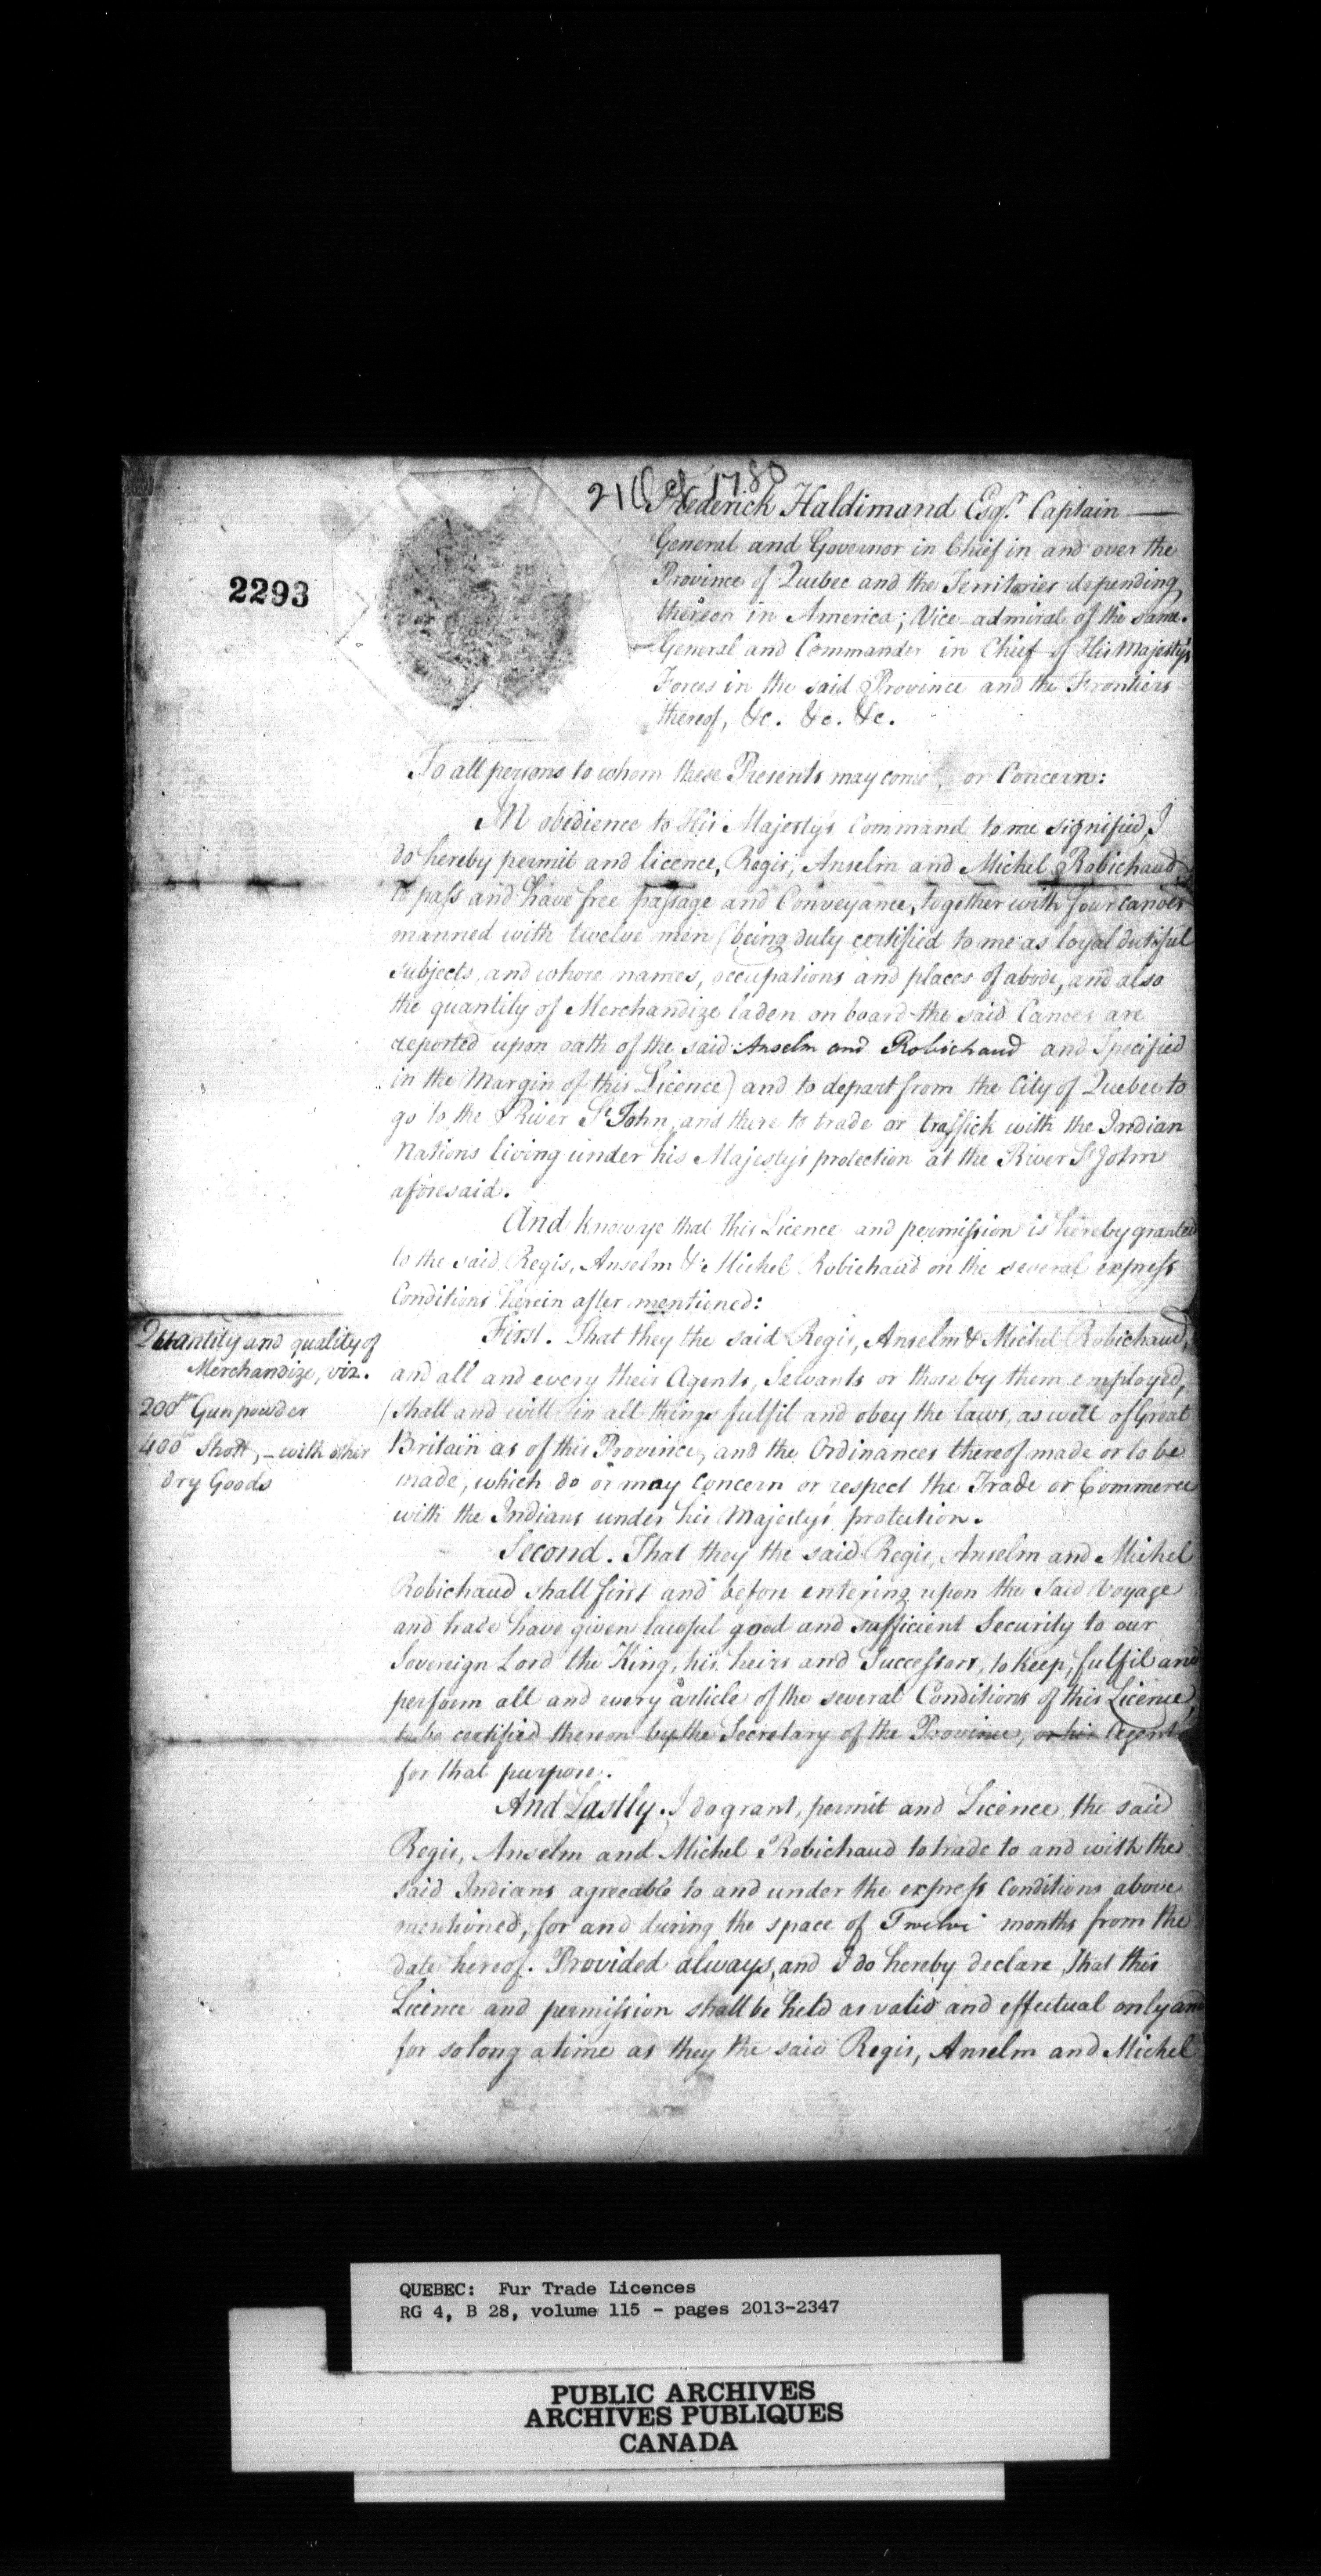 21 Oct 1780
2293
Frederick Haldimand Esqr. Captain —
General and Governor in Chief in and over the
Province of Quebec and the Territories depending
thereon in America; Vice-admiral of the same.
General and Commander in Chief of His Majesty's
Forces in the said Province and the Frontiers
thereof, &c. &c. &c.
To all persons to whom these Presents may come, or Concern:
IN obedience to His Majesty's Command to me signified, I
do hereby permit and licence, Regis, Anselm and Michel Robichaud
to pass and have free passage and Conveyance, together with four canoes
manned with twelve men (being duly certified to me as loyal dutiful
subjects, and whose names, occupations and places of abode, and also
the quantity of Merchandize laden on board the said Canoes are
reported upon oath of the said Anselm and Robichaud and Specified
in the Margin of this Licence) and to depart from the City of Quebec to
go to the River St. John, and there to trade or traffick with the Indian
Nations living under his Majesty's protection at the River St. John
aforesaid.
And know ye that this Licence and permission is hereby granted
to the said Regis, Anselm & Michel Robichaud on the several express
Conditions herein after mentioned:
Quantity and quality of
Merchandize, viz.
200lb Gunpowder
400lb Shott, – with other
dry Goods
First. That they the said Regis, Anselm & Michel Robichaud,
and all and every their Agents, Servants or those by them employed,
shall and will in all things fulfil and obey the laws, as well of Great
Britain as of this Province, and the Ordinances thereof made or to be
made, which do or may concern or respect the Trade or Commerce
with the Indians under his Majesty's protection.
Second. That they the said Regis, Anselm and Michel
Robichaud shall first and before entering upon the said Voyage
and trade have given lawful good and sufficient Security to our
Sovereign Lord the King, his heirs and Successors, to keep, fulfil and
perform all and every article of the several Conditions of this Licence,
to be certified thereon by the Secretary of the Province, or his Agent
for that purpose.
And Lastly. I do grant, permit and Licence the said
Regis, Anselm and Michel Robichaud to trade to and with the
said Indians agreeable to and under the express Conditions above
mentioned, for and during the space of Twelve months from the
date hereof. Provided always, and I do hereby declare, That this
Licence and permission shall be held as valid and effectual only and
for so long a time as they the said Regis, Anselm and Michel
QUEBEC: Fur Trade Licences
RG 4, B 28, volume 115 - pages 2013-2347
PUBLIC ARCHIVES
ARCHIVES PUBLIQUES
CANADA